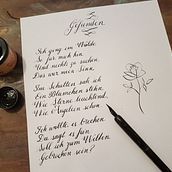 Gefunden
Ich ging im Walde
So für mich hin
Und nichts zu suchen,
Das war mein Sinn.
Im Schatten sah ich
Ein Blümchen stehn,
Wie Sterne leuchtend,
Wie Äuglein schön.
Ich wollt es brechen
Da sagt es fein
Soll ich zum Welken
Gebrochen sein?